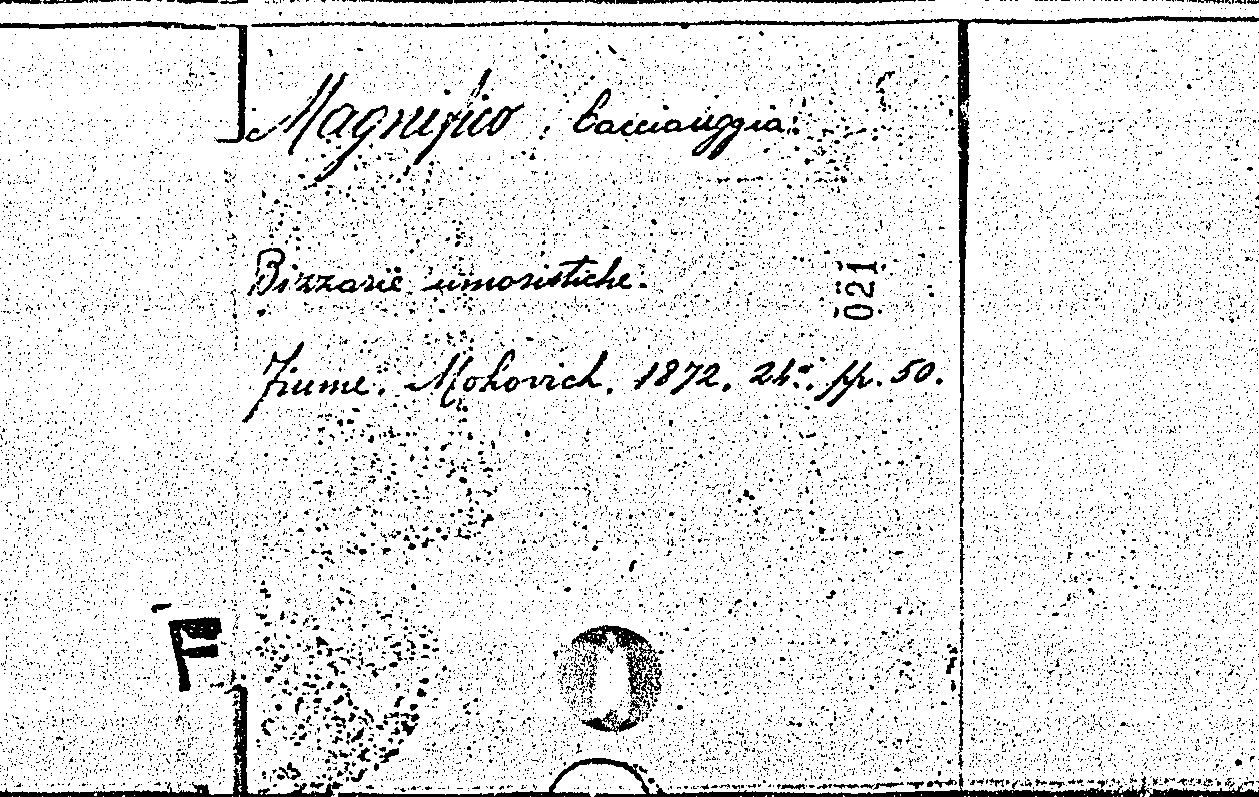 Magnifico, Cacciauggia.
Bizzarië umoristiche.
021
Fiume. Mohovich. 1872. 24º. pp. 50.
F